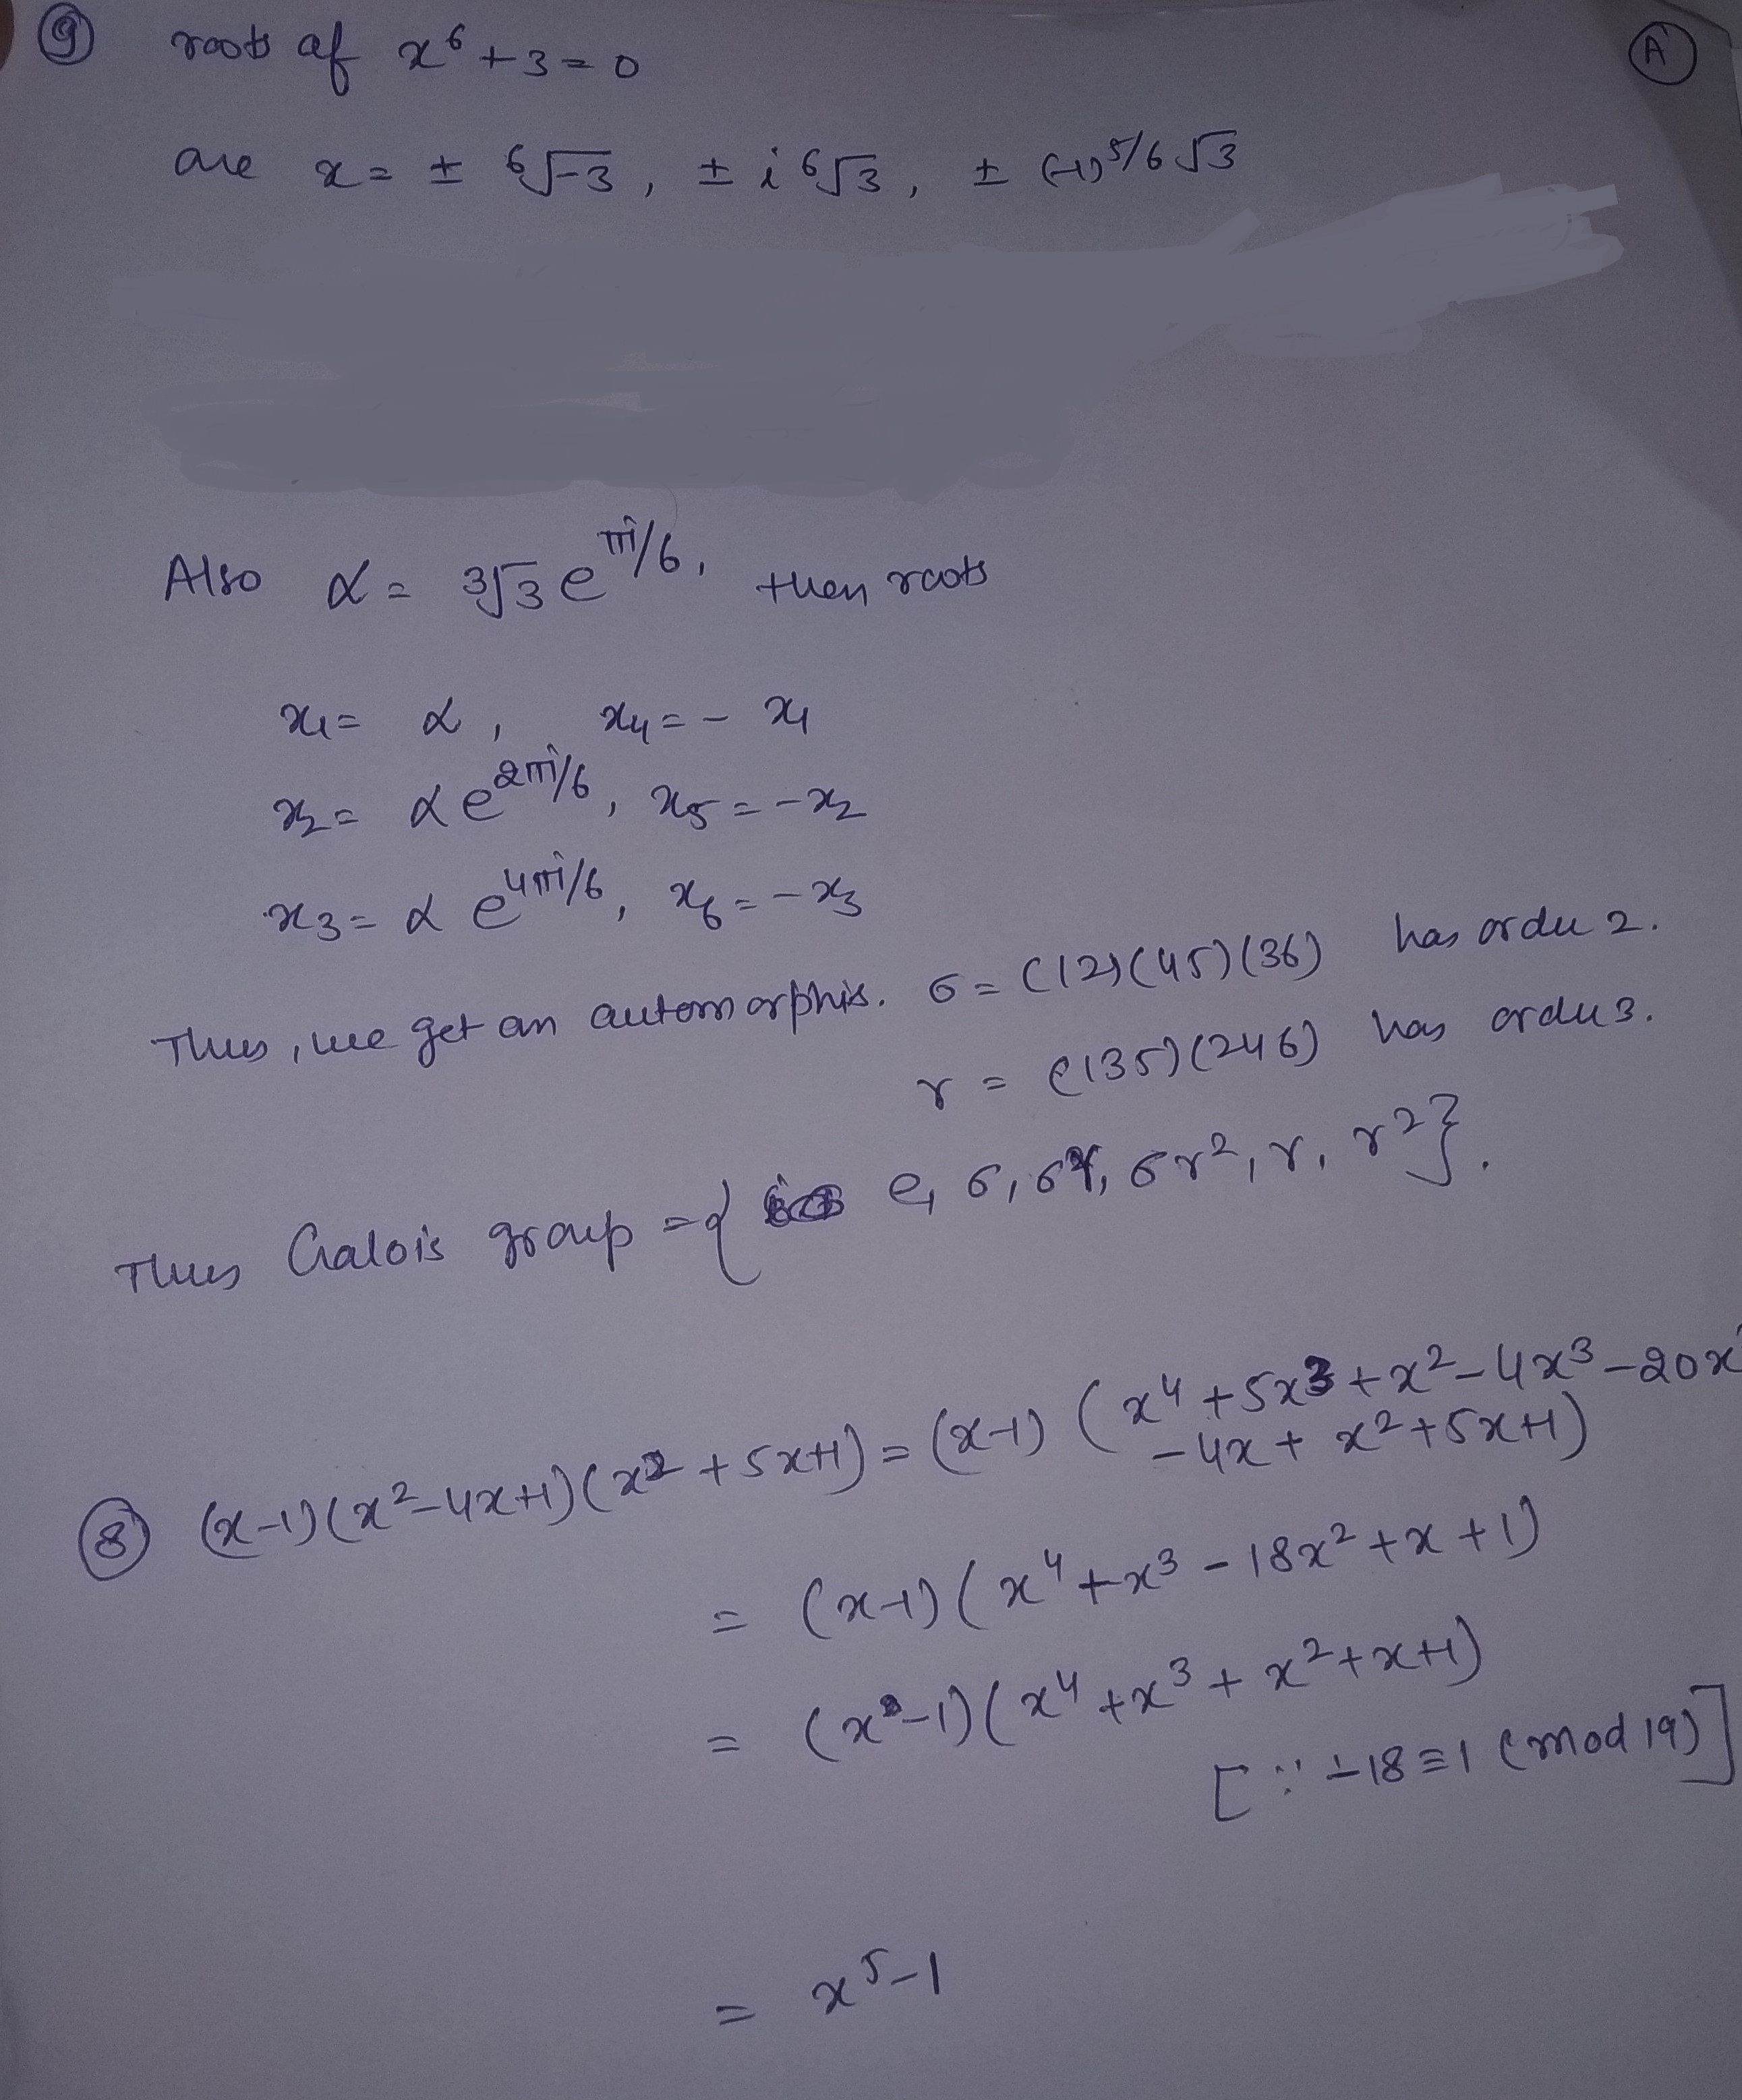 ⑨ roots of x⁶+3=0 Ⓐ
are x = ± ⁶√-3, ± i ⁶√3, ± (-1)^5/6 √3
Also α = ³√3 e^πi/6, then roots
x1 = α, x4 = - x1
x2 = α e^2πi/6, x5 = -x2
x3 = α e^4πi/6, x6 = -x3
Thus, we get an automorphis. σ = (12)(45)(36) has order 2.
r = (135)(246) has order 3.
Thus Galois group = { e, σ, σr, σr², r, r² }.
⑧ (x-1)(x²-4x+1)(x²+5x+1) = (x-1) ( x⁴+5x³+x²-4x³-20x²
-4x + x²+5x+1)
= (x-1)(x⁴+x³-18x²+x+1)
= (x-1)(x⁴+x³+x²+x+1)
[∵ -18≡1 (mod 19)]
= x⁵-1